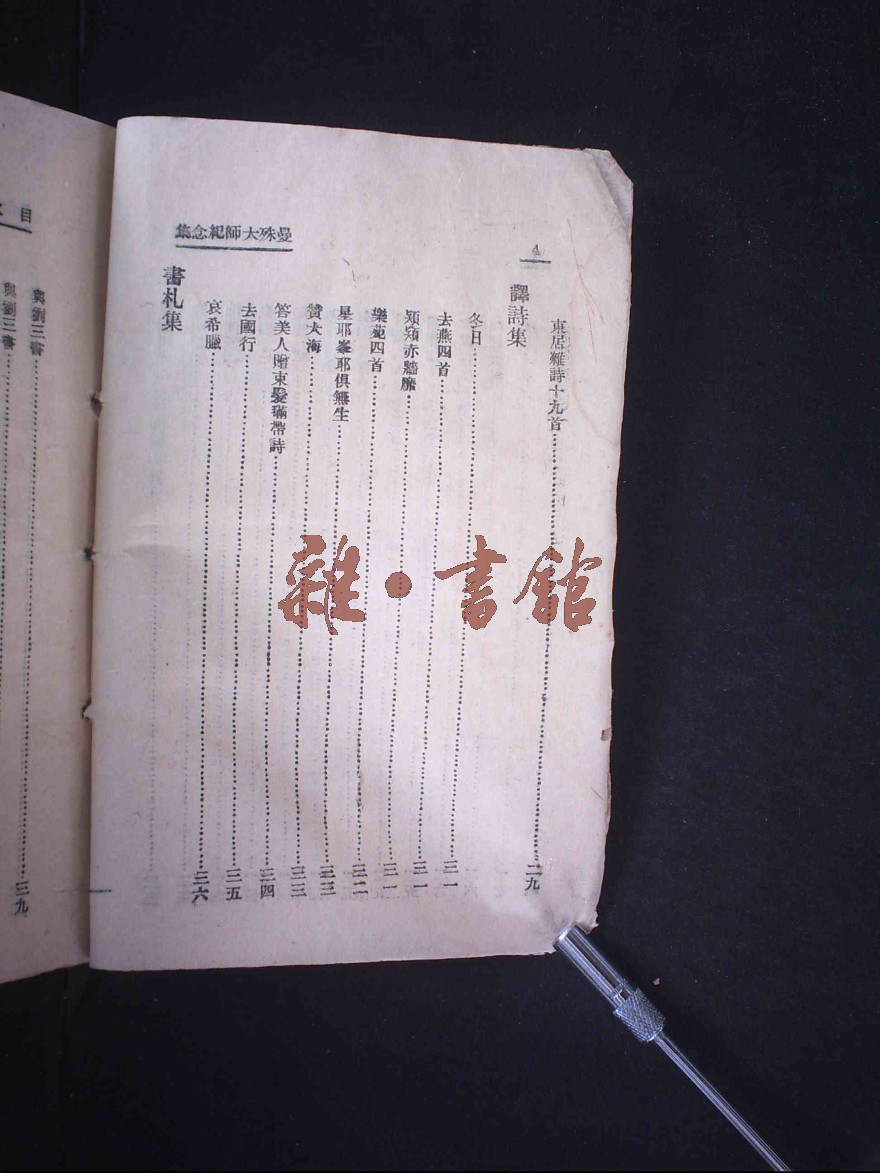 曼殊大師紀念集
4
東居雜詩十九首……二九
譯詩集
冬日……三一
去燕四首……三一
熲熲赤牆靡……三一
樂苑四首……三二
星耶峯耶俱無生……三三
贊大海……三三
答美人贈束髮𤩽帶詩……三四
去國行……三五
哀希臘……三六
書札集
目
與劉三書……三九
與劉三書
雜·書館